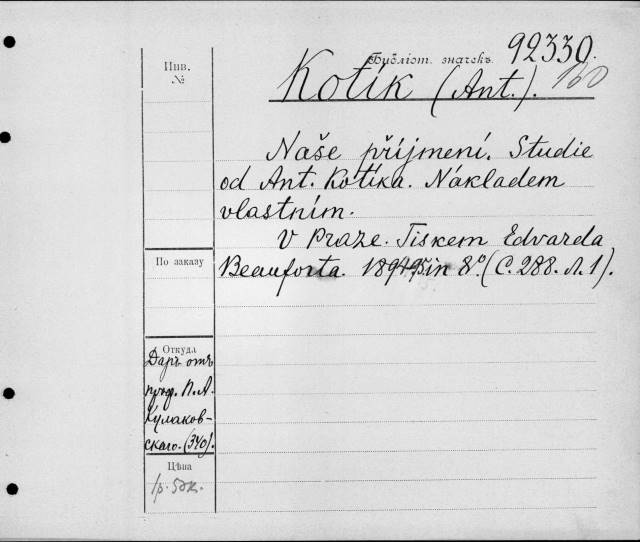 Инв.
№
Библіот. значекъ. 92330.
Kotík (Ant.). 160
Naše příjmení. Studie
od Ant. Kotíka. Nákladem
vlastním.
V Praze. Tiskem Edvarda
Beauforta. in 8º. (С. 288. л. 1).
По заказу
Откуда
Даръ отъ
проф. П. А.
Кулаков-
скаго. (340).
Цѣна
1р. 50к.